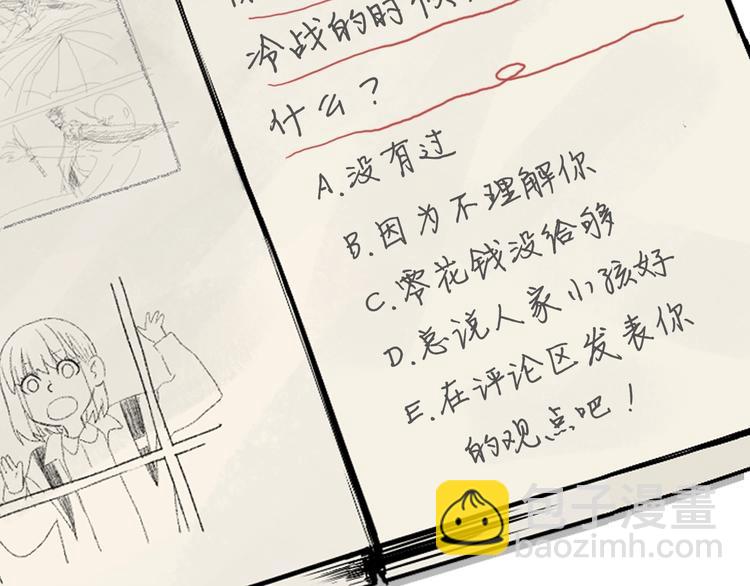 冷战的时候
什么？
A.没有过
B.因为不理解你
C.零花钱没给够
D.总说人家小孩好
E.在评论区发表你
的观点吧！
包子漫畫
baozimh.com